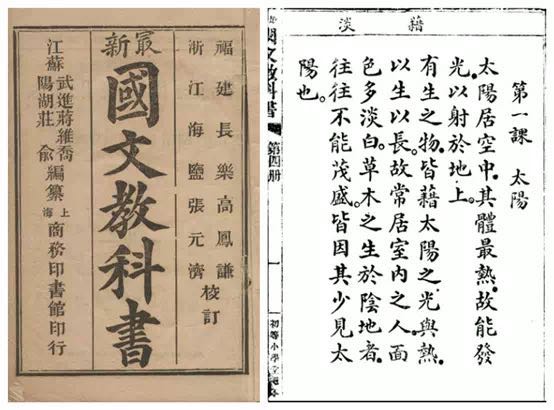 最新
福建長樂高鳳謙
浙江海鹽張元濟
校訂
國文教科書
江蘇
武進蔣維喬
陽湖莊俞
編纂
上海
商務印書館印行
藉 淡
第一課 太陽
太陽居空中。其體最熱。故能發
光以射於地上。
有生之物。皆藉太陽之光與熱。
以生以長。故常居室內之人。面
色多淡白。草木之生於陰地者。
往往不能茂盛。皆因其少見太
陽也。
國文教科書 第四册
一
初等小學堂